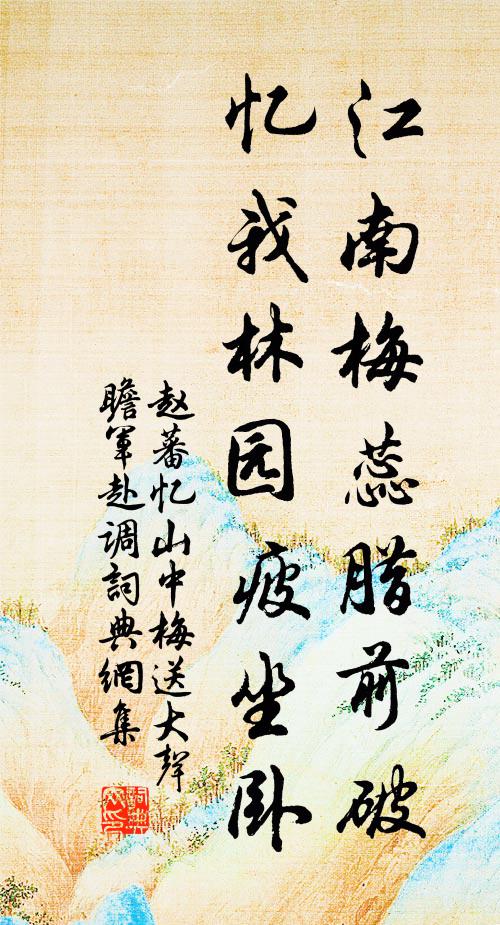 江南梅蕊腊前破
忆我林园疲坐卧
赵蕃忆山中梅送大聲
瞻軍赴调詞典網集